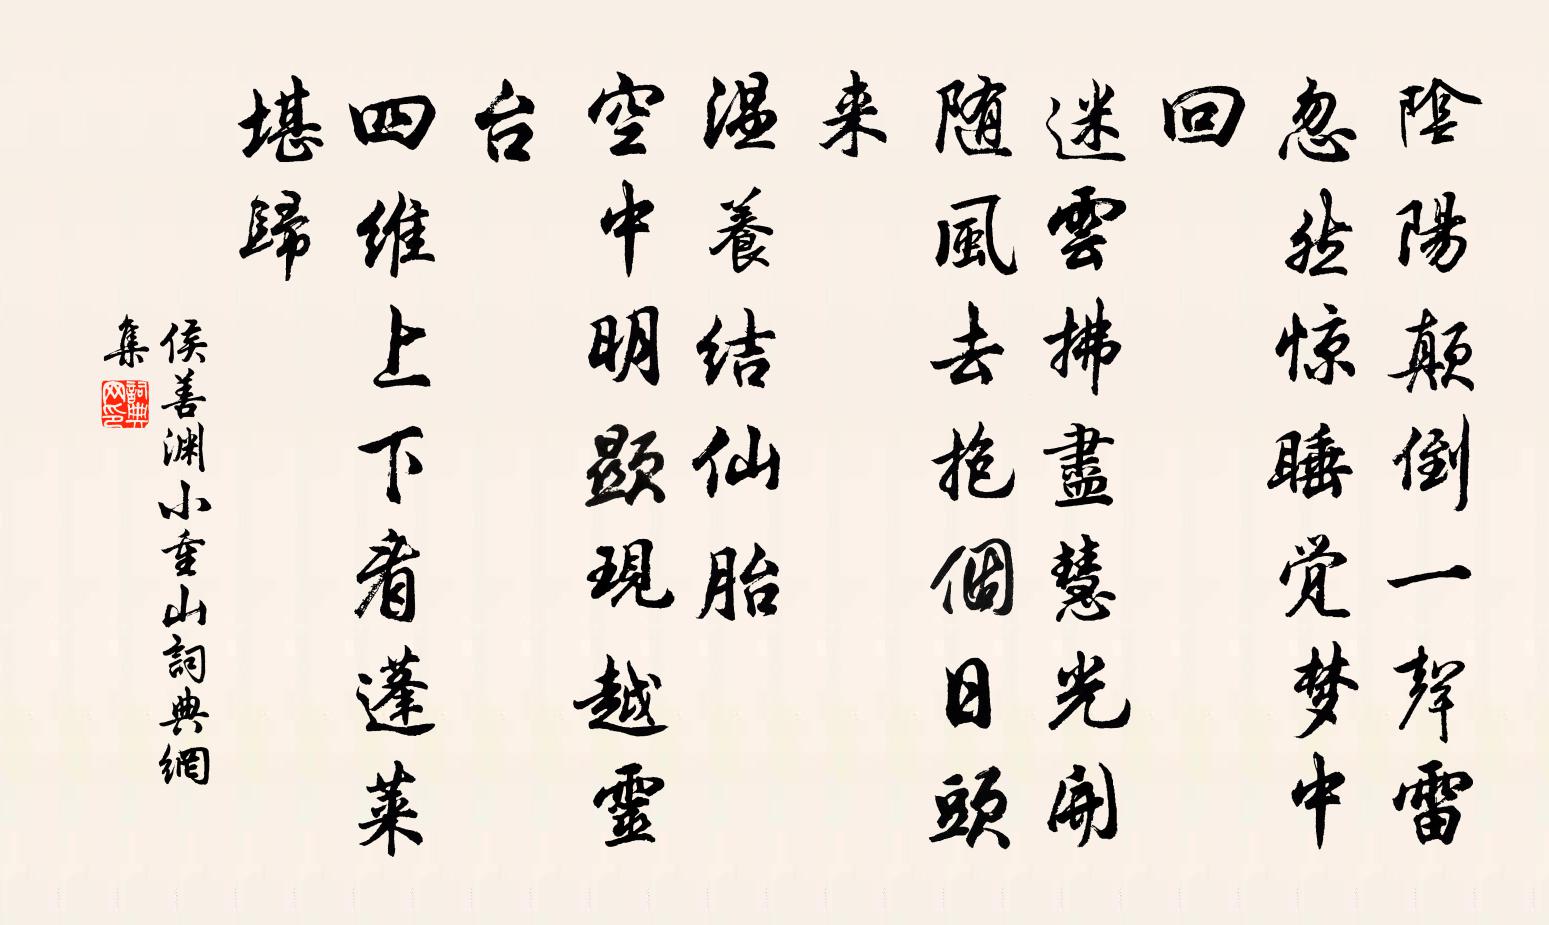 陰陽顛倒一聲雷
忽然惊睡觉梦中
回
迷雲拂盡慧光開
随風去抱個日頭
来
温養结仙胎
空中明顕現越靈
台
四維上下看蓬莱
堪歸
侯善渊小重山詞典網
集
詞典
网印